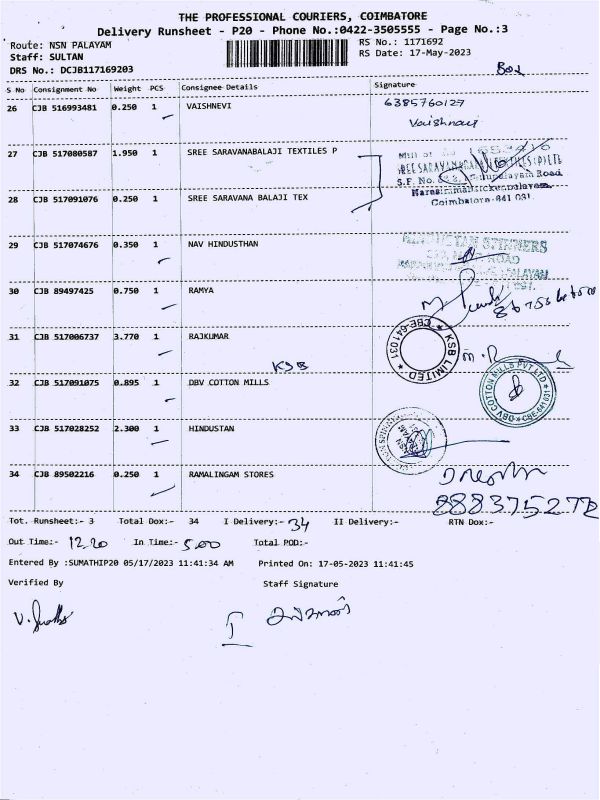 THE PROFESSIONAL COURIERS, COIMBATORE
Delivery Runsheet - P20 - Phone No.:0422-3505555 - Page No.:3
Route: NSN PALAYAM
RS No.: 1171692
Staff: SULTAN
RS Date: 17-May-2023
DRS No.: DCJB117169203
Box
S No Consignment No Weight PCS Consignee Details Signature
26 CJB 516993481 0.250 1 VAISHNEVI 6385760127
Vaishnavi
27 CJB 517080587 1.950 1 SREE SARAVANABALAJI TEXTILES P
S.F. No.
Coimbatore-641 031.
28 CJB 517091076 0.250 1 SREE SARAVANA BALAJI TEX
29 CJB 517074676 0.350 1 NAV HINDUSTHAN
HINDUSTAN SPINNERS
ROAD
30 CJB 89497425 0.750 1 RAMYA
31 CJB 517006737 3.770 1 RAJKUMAR
KSB
KSB LIMITED * CBE-641031 *
32 CJB 517091075 0.895 1 DBV COTTON MILLS
DBV COTTON MILLS PVT LTD * CBE-641031 *
33 CJB 517028252 2.300 1 HINDUSTAN
34 CJB 89502216 0.250 1 RAMALINGAM STORES
8883752772
Tot. Runsheet:- 3 Total Dox:- 34 I Delivery:- 34 II Delivery:- RTN Dox:-
Out Time:- 12.20 In Time:- 5.00 Total POD:-
Entered By :SUMATHIP20 05/17/2023 11:41:34 AM Printed On: 17-05-2023 11:41:45
Verified By Staff Signature